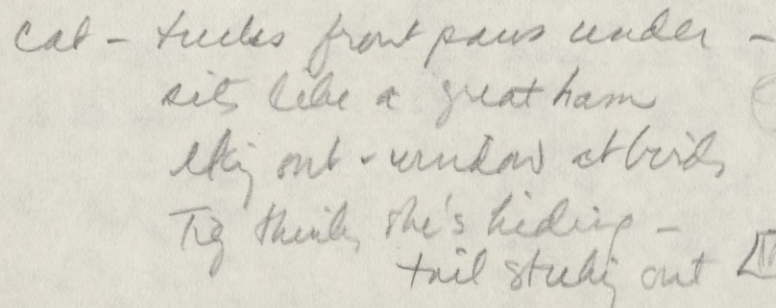 cat - tucks front paws under -
sits like a great ham
lkg out window at birds
thinks she's hiding -
tail sticking out